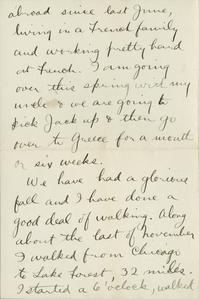 abroad since last June,
living in a French family
and working pretty hard
at French. I am going
over this spring with my
uncle & we are going to
pick Jack up & then go
over to Greece for a month
or six weeks.
We have had a glorious
fall and I have done a
good deal of walking. Along
about the last of November
I walked from Chicago
to Lake Forest, 32 miles.
I started a 6 o'clock, walked